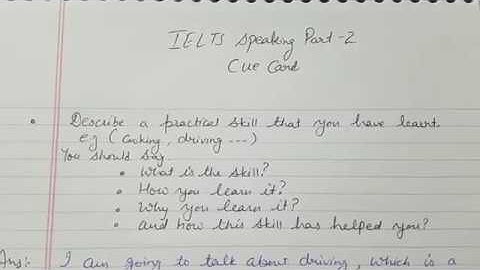 IELTS Speaking Part-2
Cue Card
• Describe a practical skill that you have learnt.
eg (Cooking, driving ---)
You should say
• What is the skill?
• How you learn it?
• Why you learn it?
• And how this skill has helped you?
Ans:- I am going to talk about driving, which is a